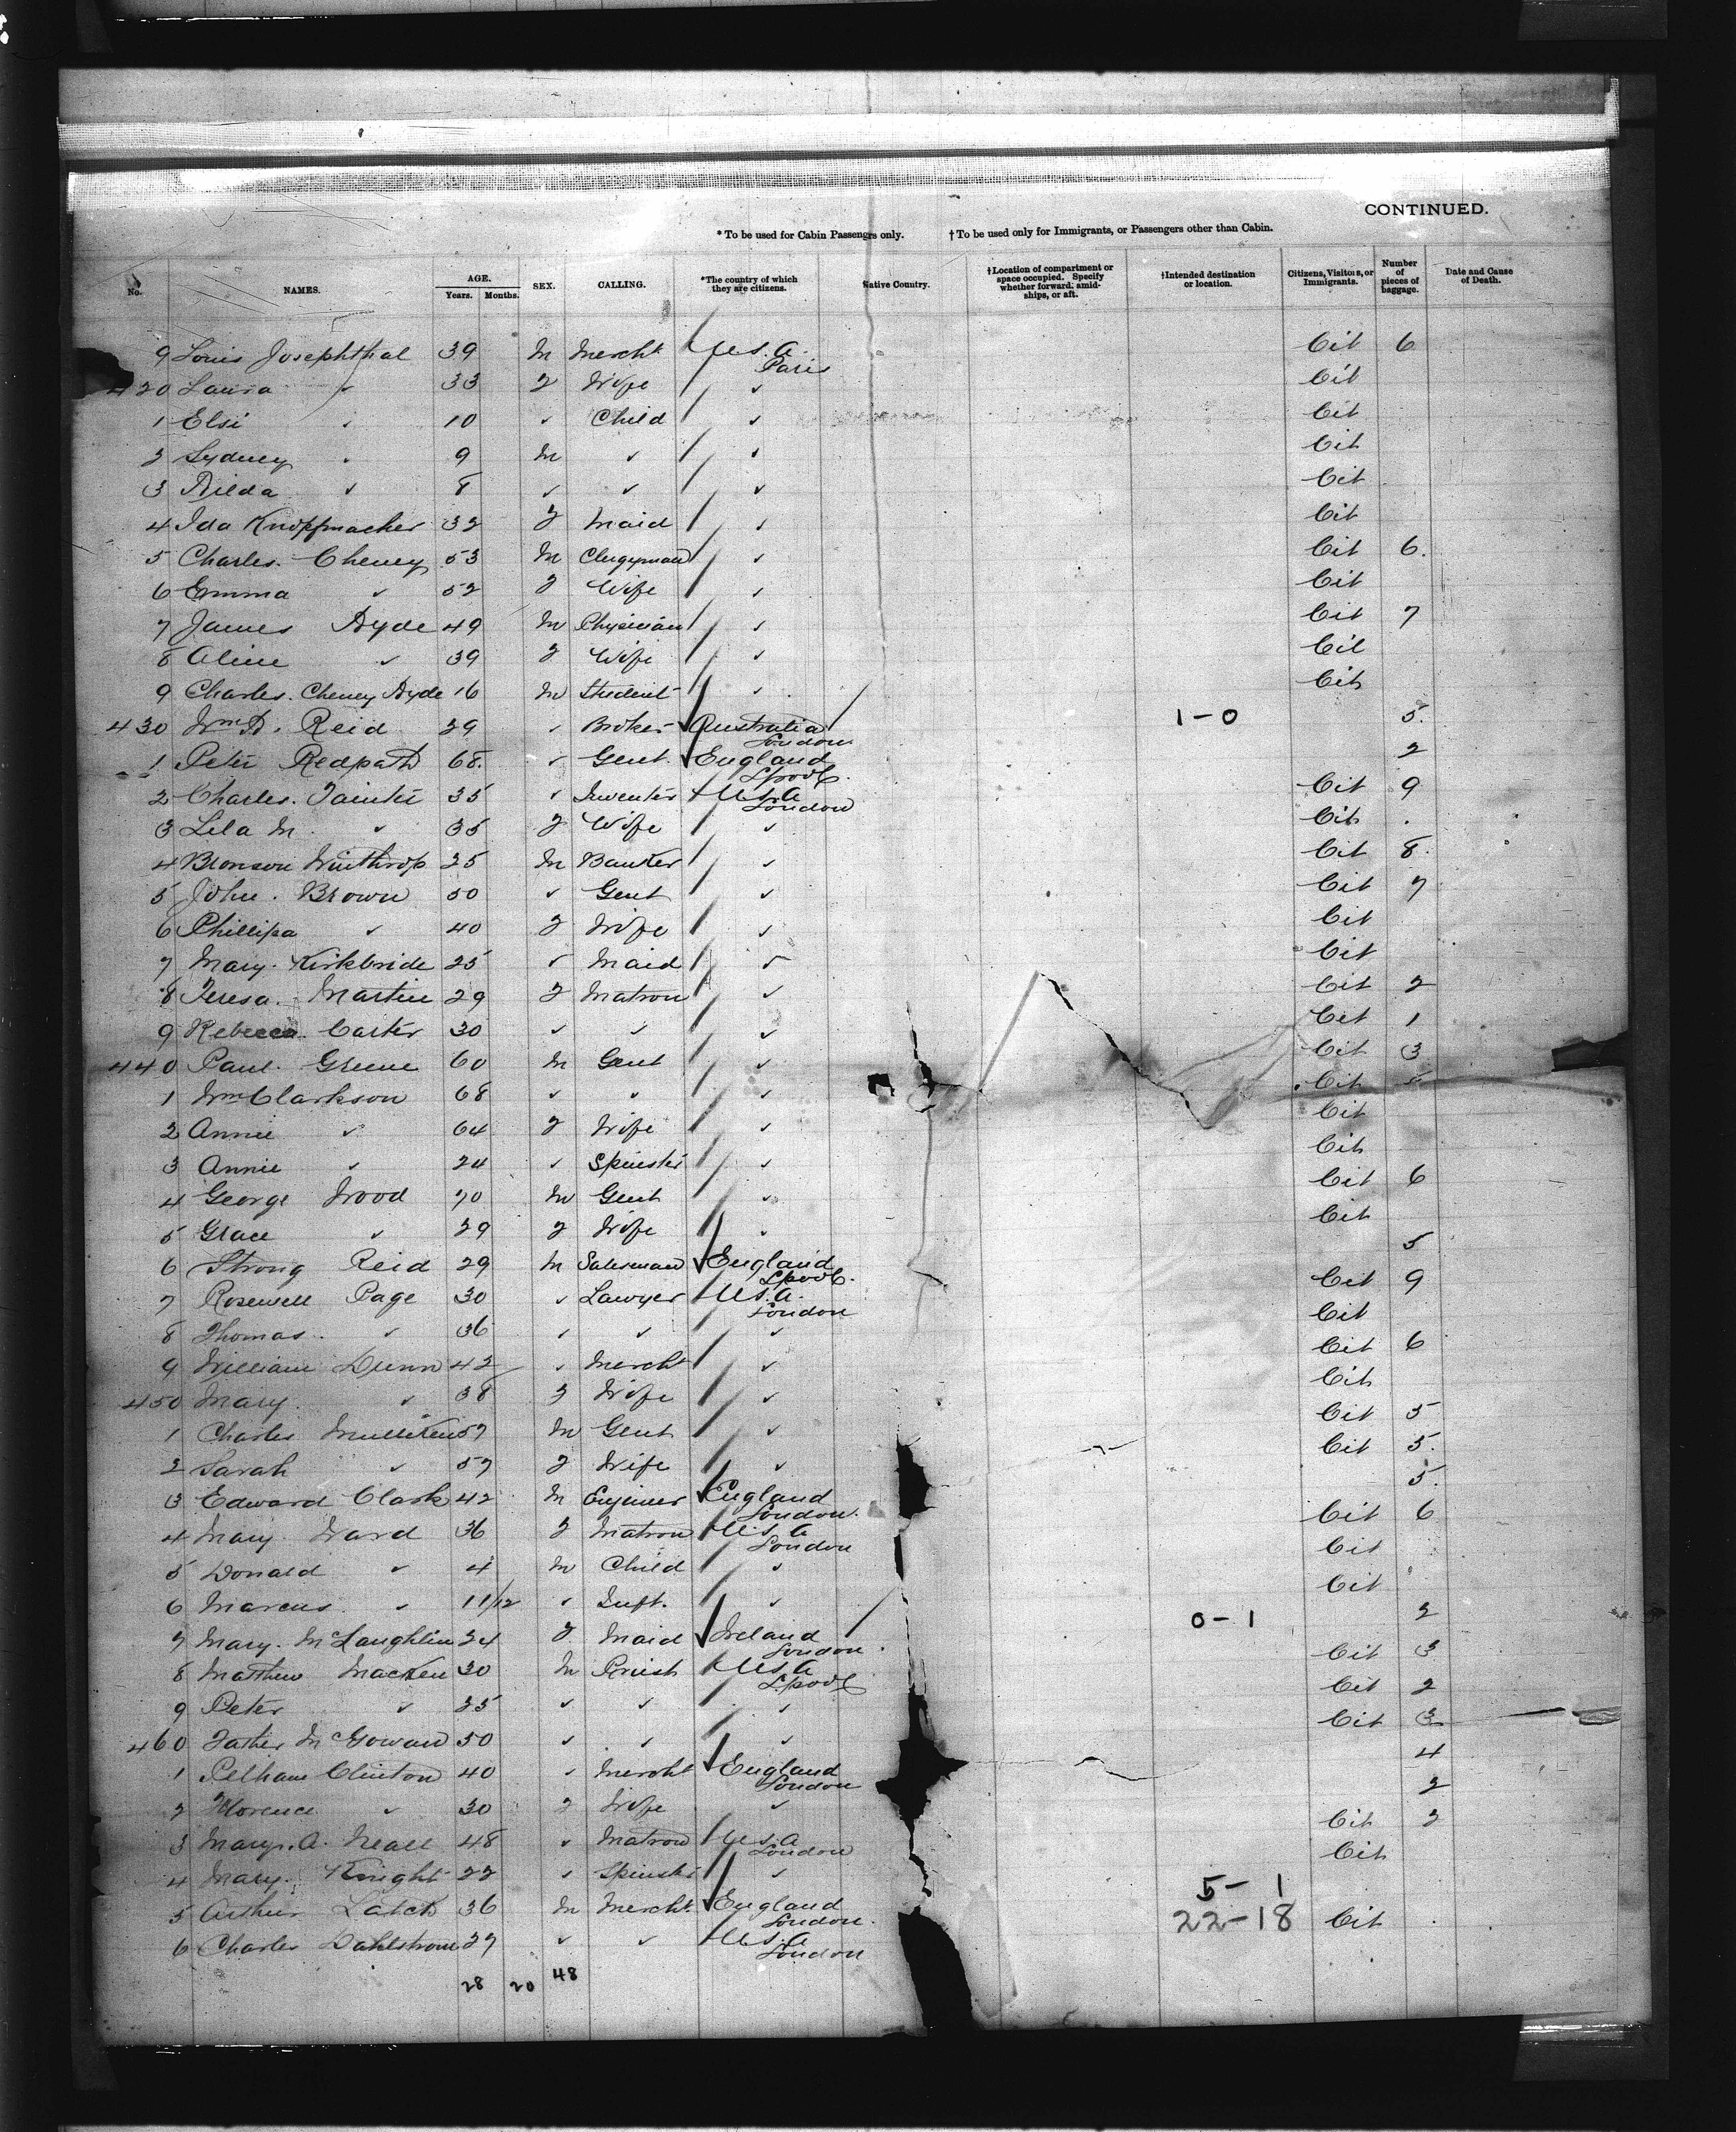 CONTINUED.
* To be used for Cabin Passengers only. † To be used only for Immigrants, or Passengers other than Cabin.
No. NAMES. AGE. Years. Months. SEX. CALLING. *The country of which they are citizens. Native Country. †Location of compartment or space occupied. Specify whether forward, amidships, or aft. †Intended destination or location. Citizens, Visitors, or Immigrants. Number of pieces of baggage. Date and Cause of Death.
9 Louis Josephthal 39 M Mercht U.S.A. Paris Cit 6
420 Laura " 33 F Wife " Cit
1 Elsi " 10 " Child " Cit
2 Sydney " 9 M " " Cit
3 Hilda " 8 " " " Cit
4 Ida Knopfmacher 32 F Maid " Cit
5 Charles. Cheney 53 M Clergyman " Cit 6.
6 Emma " 52 F Wife " Cit
7 James Hyde 49 M Physician " Cit 7
8 Aline " 39 F Wife " Cit
9 Charles. Cheney Hyde 16 M Student " Cit
430 Wm D. Reid 29 " Broker Australia London 1-0 5.
1 Peter Redpath 68. " Gent. England Lpool. 2
2 Charles. Tainter 35 " Inventor U.S.A London Cit 9
3 Lila M. " 35 F Wife " Cit.
4 Bronson Winthrop 25 M Banker " Cit 8.
5 John. Brown 50 " Gent " Cit 7
6 Phillipa " 40 F Wife " Cit
7 Mary. Kirkbride 25 " Maid " Cit
8 Teresa. Martin 29 F Matron " Cit 2
9 Rebecca Carter 30 " " " Cit 1
440 Paul. Greene 60 M Gent " Cit 3
1 Wm Clarkson 68 " " " Cit 5
2 Annie " 64 F Wife " Cit
3 Annie " 24 " Spinster " Cit
4 George Wood 70 M Gent " Cit 6
5 Grace " 29 F Wife " Cit
6 Strong Reid 29 M Salesman England Lpool. 5
7 Rosewell Page 30 " Lawyer U.S.A. London Cit 9
8 Thomas " 36 " " " Cit
9 William Dunn 42 " Mercht " Cit 6
450 Mary. " 38 F Wife " Cit
1 Charles Mulliken 57 M Gent " Cit 5
2 Sarah " 57 F Wife " Cit 5.
3 Edward Clark 42 M Engineer England London. 5.
4 Mary. Ward 36 F Matron U.S.A London Cit 6
5 Donald " 4 M Child " Cit
6 Marcus. " 11/12 " Inft. " Cit
7 Mary. McLaughlin 24 F Maid Ireland London 0-1 2
8 Matthew Macken 30 M Priest U.S.A Lpool Cit 3
9 Peter " 35 " " " Cit 2
460 Father McGowan 50 " " " Cit 3
1 Pelham Clinton 40 " Mercht England London 4
2 Florence " 30 F Wife " 2
3 Mary. A. Neall 48 " Matron U.S.A London Cit 2
4 Mary. Knight 22 " Spinster " Cit
5 Arthur Latch 36 M Mercht. England London. 5-1
6 Charles Dahlstrom 27 " " U.S.A London 22-18 Cit
28 20 48